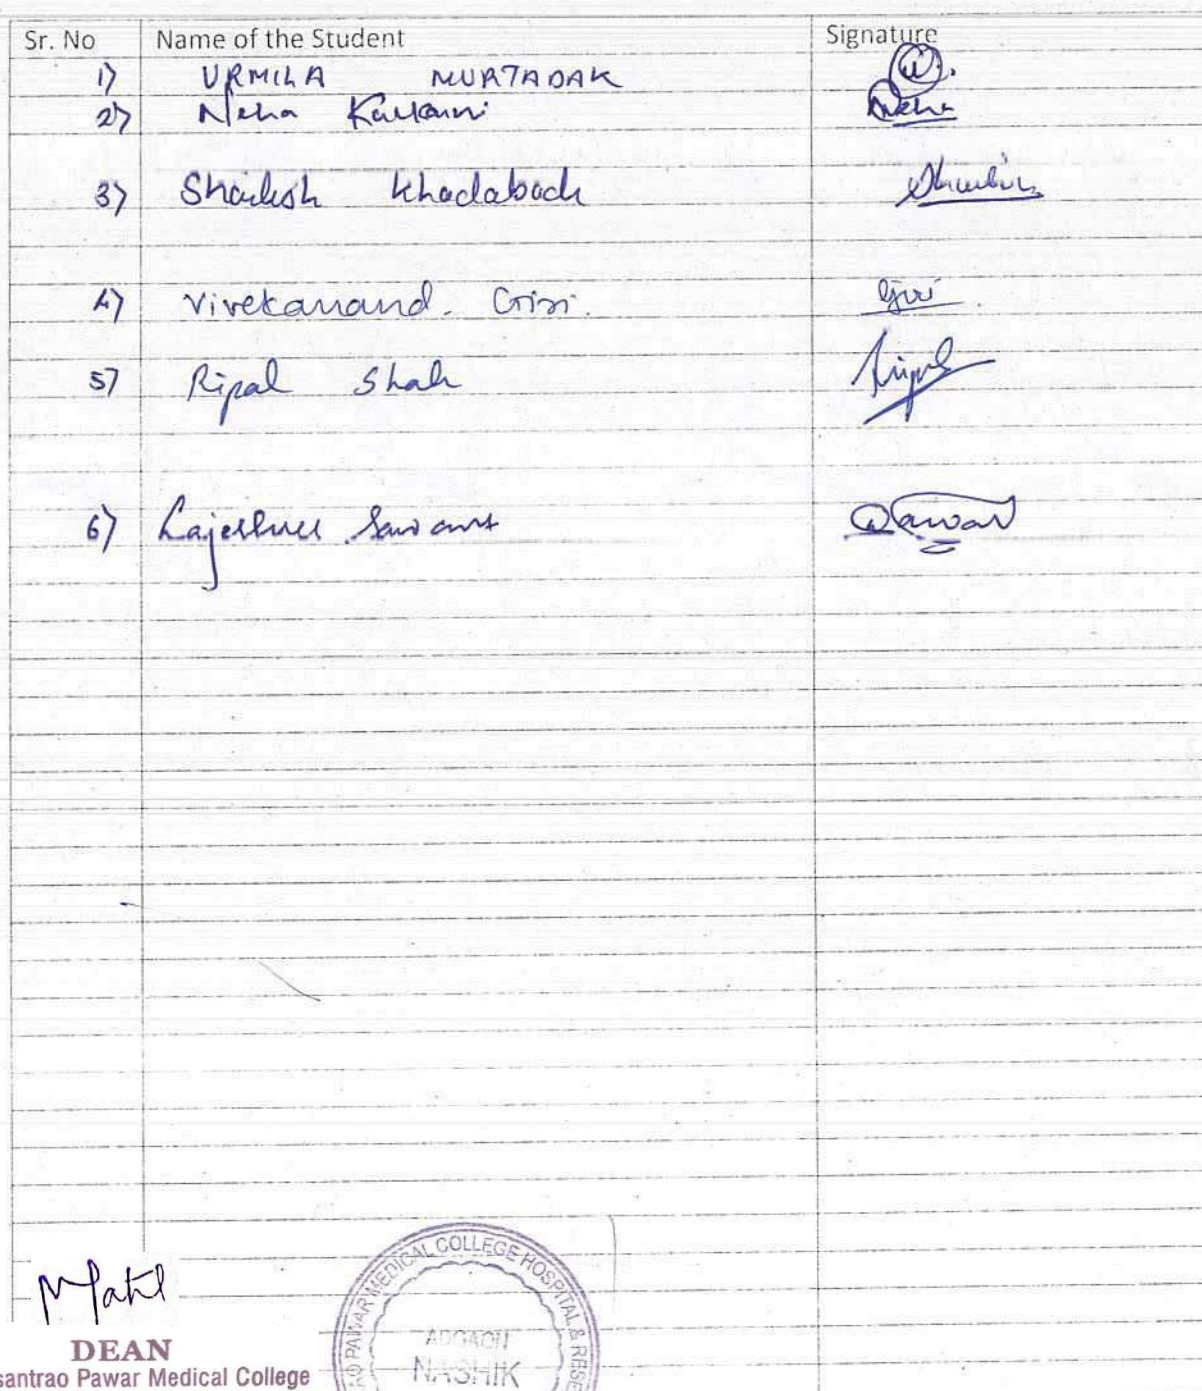 Sr. No Name of the Student Signature
1) URMILA MURTADAK
2) Neha Kulkarni Neha
3) Shailesh Khadabadi
4) Vivekanand. Giri. Giri.
5) Ripal Shah Ripal
6) Rajeshree Sawant Sawant
Patil
DEAN
santrao Pawar Medical College
RAO PAWAR MEDICAL COLLEGE HOSPITAL & RESE
ADGAON
NASHIK